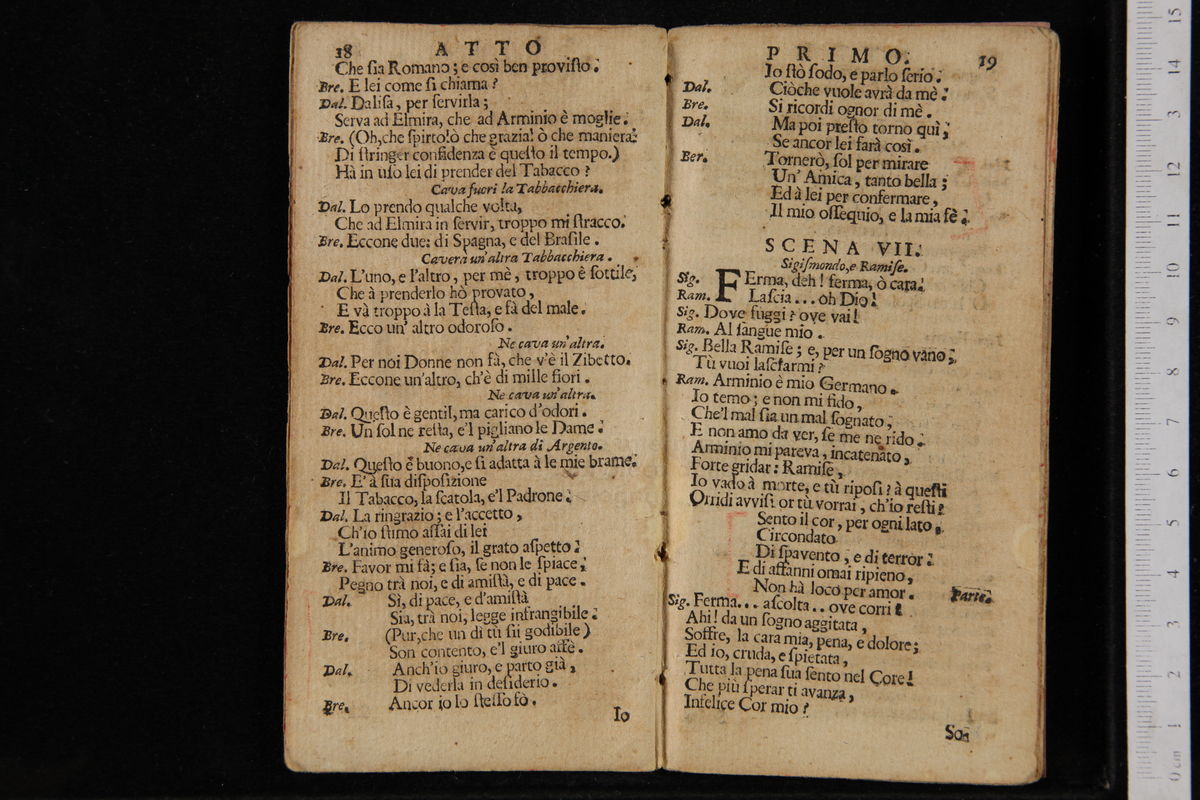 18 ATTO
Che ſia Romano; e così ben proviſto.
Bre. E lei come ſi chiama?
Dal. Daliſa, per ſervirla;
Serva ad Elmira, che ad Arminio è moglie.
Bre. (Oh, che ſpirto! ò che grazia! ò che maniera!
Di ſtringer confidenza è queſto il tempo.)
Hà in uſo lei di prender del Tabacco?
Cava fuori la Tabbacchiera.
Dal. Lo prendo qualche volta,
Che ad Elmira in ſervir, troppo mi ſtracco.
Bre. Eccone due: di Spagna, e del Braſile.
Caverà un'altra Tabbacchiera.
Dal. L'uno, e l'altro, per mè, troppo è ſottile,
Che à prenderlo hò provato,
E và troppo à la Teſta, e fà del male.
Bre. Ecco un' altro odoroſo.
Ne cava un'altra.
Dal. Per noi Donne non fà, che v'è il Zibetto.
Bre. Eccone un'altro, ch'è di mille fiori.
Ne cava un'altra.
Dal. Queſto è gentil, ma carico d'odori.
Bre. Un ſol ne reſta, e'l pigliano le Dame.
Ne cava un'altra di Argento.
Dal. Queſto è buono, e ſi adatta à le mie brame.
Bre. E' à ſua diſpoſizione
Il Tabacco, la ſcatola, e'l Padrone.
Dal. La ringrazio; e l'accetto,
Ch'io ſtimo aſſai di lei
L'animo generoſo, il grato aſpetto.
Bre. Favor mi fà; e ſia, ſe non le ſpiace,
Pegno trà noi, e di amiſtà, e di pace.
Dal. Sì, di pace, e d'amiſtà
Sia, trà noi, legge infrangibile.
Bre. (Pur, che un dì tù ſii godibile)
Son contento, e'l giuro affè.
Dal. Anch'io giuro, e parto già,
Di vederla in deſiderio.
Bre. Ancor io lo ſteſſo fò.
Io
PRIMO. 19
Io ſtò ſodo, e parlo ſerio.
Dal. Ciòche vuole avrà da mè.
Bre. Si ricordi ognor di mè.
Dal. Ma poi preſto torno quì,
Se ancor lei farà così.
Ber. Tornerò, ſol per mirare
Un' Amica, tanto bella;
Ed à lei per confermare,
Il mio oſſequio, e la mia fè.
SCENA VII.
Sigiſmondo, e Ramiſe.
Sig. FErma, deh! ferma, ò cara.
Ram. Laſcia... oh Dio!
Sig. Dove fuggi? ove vai!
Ram. Al ſangue mio.
Sig. Bella Ramiſe; e, per un ſogno vano,
Tù vuoi laſciarmi?
Ram. Arminio è mio Germano.
Io temo; e non mi fido,
Che'l mal ſia un mal ſognato,
E non amo da ver, ſe me ne rido.
Arminio mi pareva, incatenato,
Forte gridar: Ramiſe,
Io vado à morte, e tù ripoſi? à queſti
Orridi avviſi or tù vorrai, ch'io reſti?
Sento il cor, per ogni lato,
Circondato
Di ſpavento, e di terror.
E di affanni omai ripieno,
Non hà loco per amor. Parte.
Sig. Ferma... aſcolta.. ove corri!
Ahi! da un ſogno aggitata,
Soffre, la cara mia, pena, e dolore;
Ed io, cruda, e ſpietata,
Tutta la pena ſua ſento nel Core!
Che più ſperar ti avanza,
Infelice Cor mio?
So-